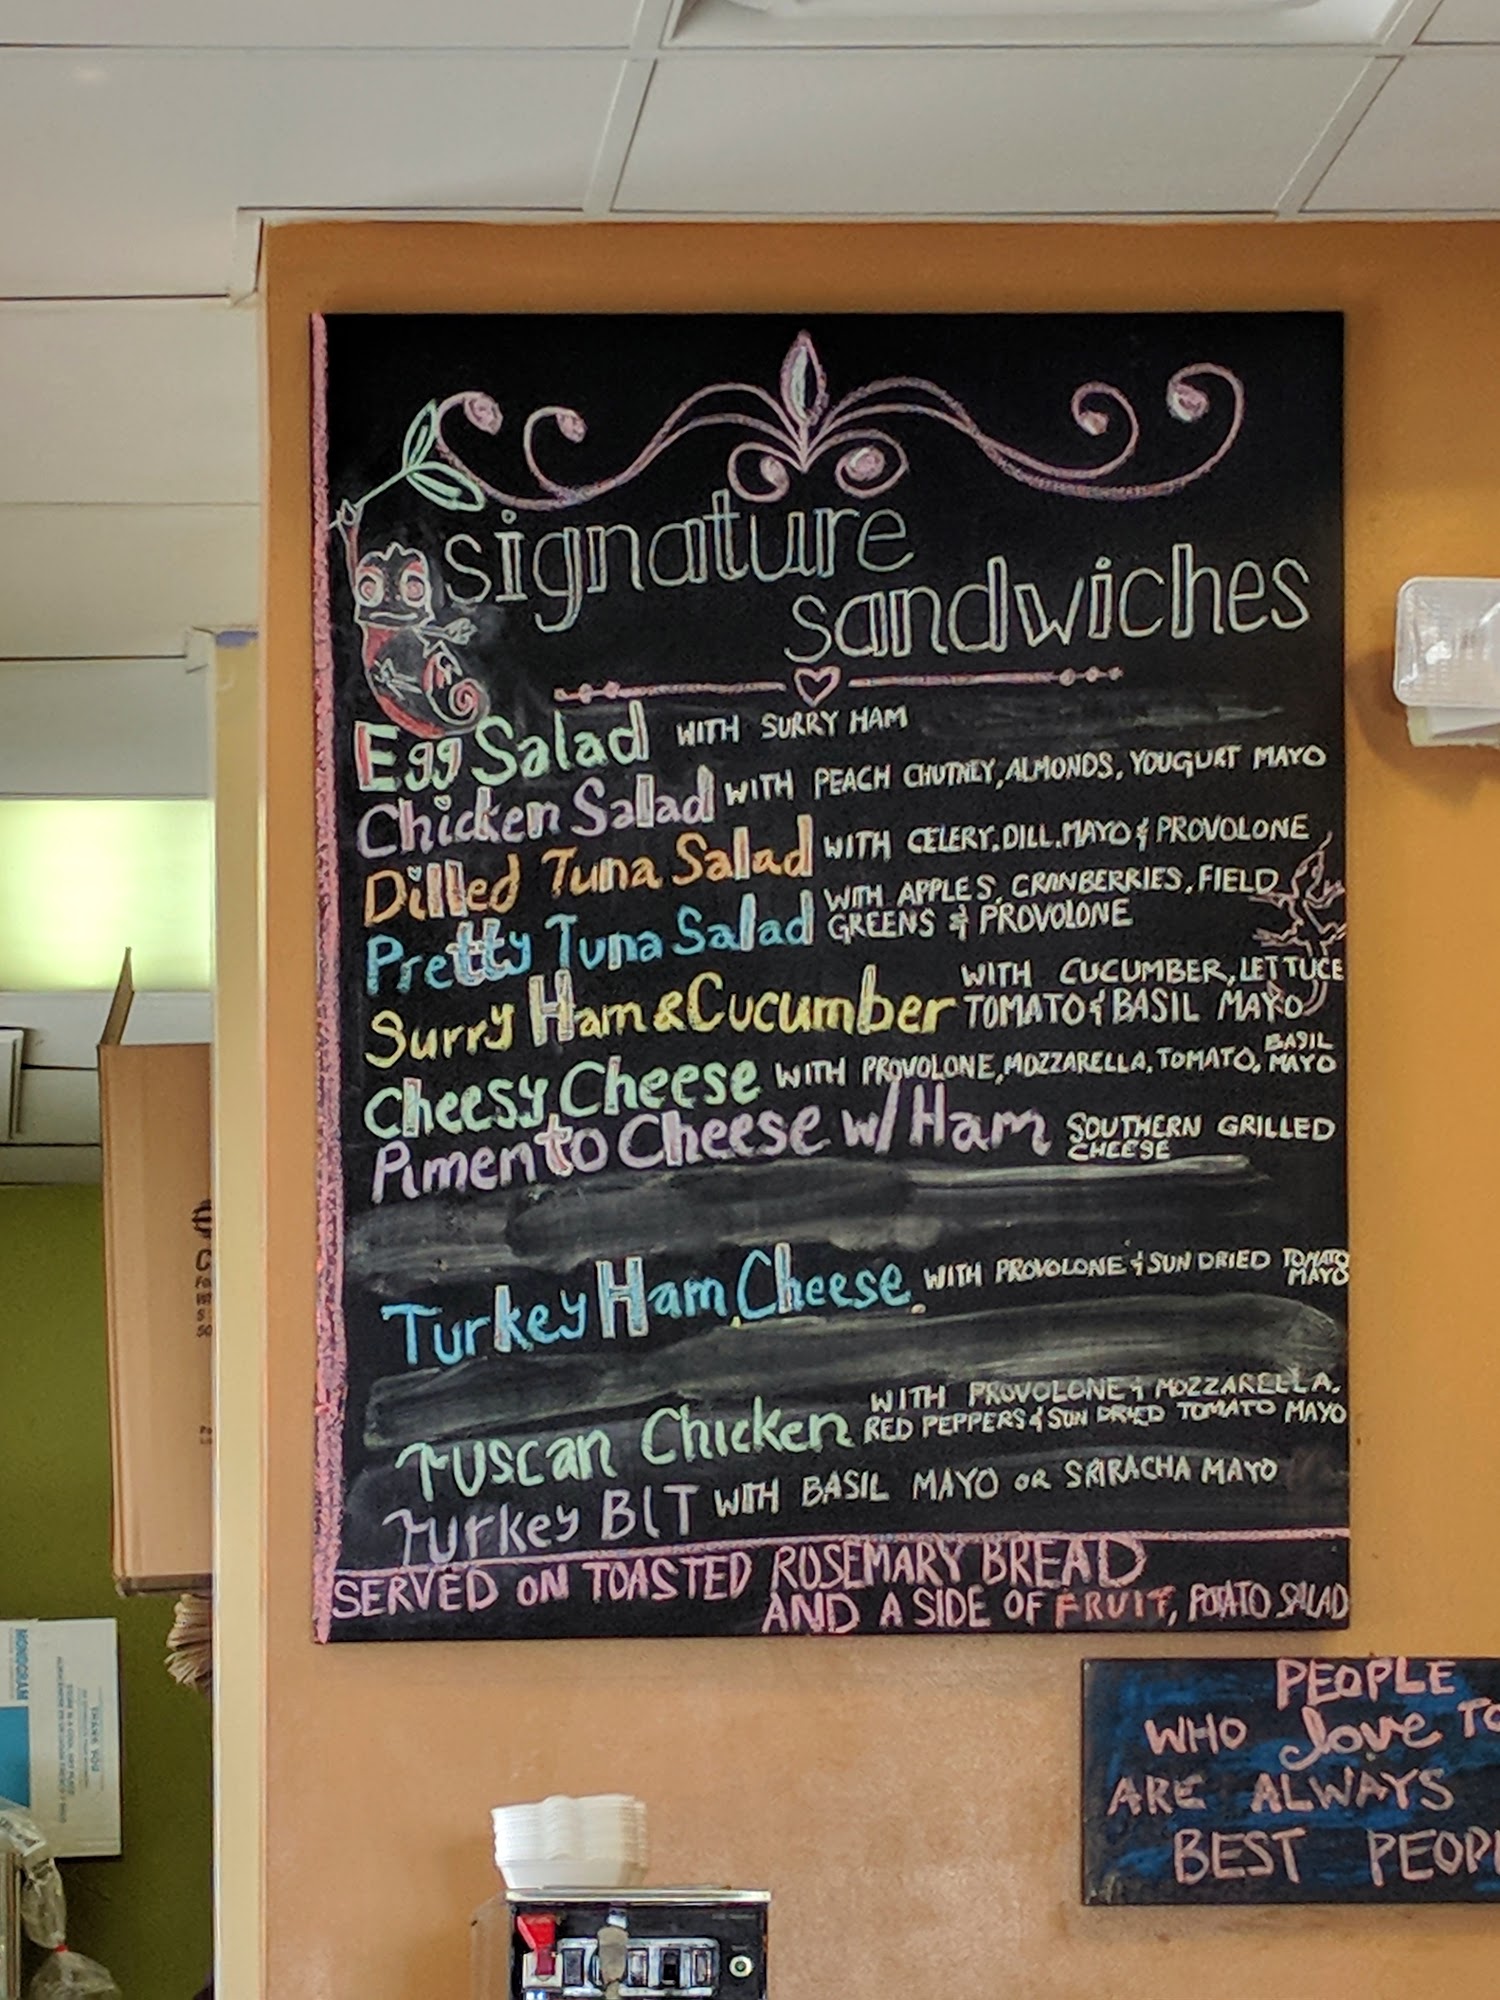 signature
sandwiches
Egg Salad WITH SURRY HAM
Chicken Salad WITH PEACH CHUTNEY, ALMONDS, YOUGURT MAYO
Dilled Tuna Salad WITH CELERY, DILL, MAYO & PROVOLONE
Pretty Tuna Salad WITH APPLES, CRANBERRIES, FIELD
GREENS & PROVOLONE
Surry Ham & Cucumber WITH CUCUMBER, LETTUCE
TOMATO & BASIL MAYO
Cheesy Cheese WITH PROVOLONE, MOZZARELLA, TOMATO, BASIL
MAYO
Pimento Cheese w/ Ham SOUTHERN GRILLED
CHEESE
Turkey Ham, Cheese, WITH PROVOLONE & SUN DRIED TOMATO
MAYO
Tuscan Chicken WITH PROVOLONE & MOZZARELLA,
RED PEPPERS & SUN DRIED TOMATO MAYO
Turkey BLT WITH BASIL MAYO OR SRIRACHA MAYO
SERVED ON TOASTED ROSEMARY BREAD
AND A SIDE OF FRUIT, POTATO SALAD
PEOPLE
WHO love TO
ARE ALWAYS
BEST PEOPL
MONOGRAM
THANK YOU